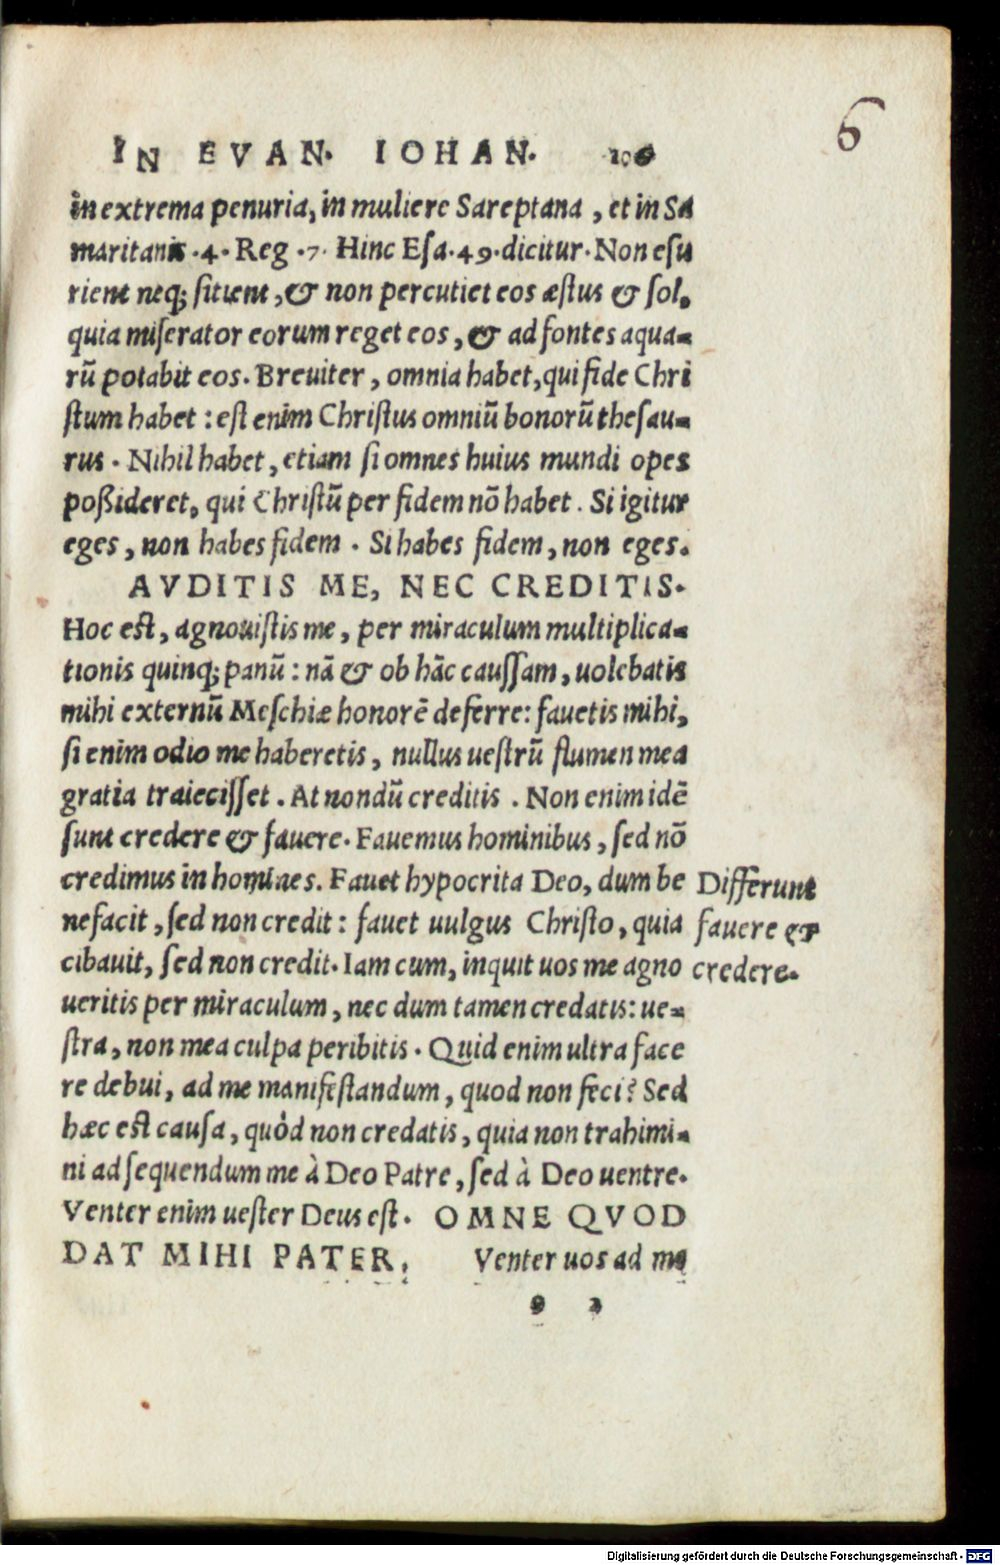 6
IN EVAN. IOHAN. 106
in extrema penuria, in muliere Sareptana, et in Sa
maritanis .4. Reg .7. Hinc Esa.49.dicitur. Non esu
rient neq; sitient, & non percutiet eos æstus & sol,
quia miserator eorum reget eos, & ad fontes aqua-
rū potabit eos. Breuiter, omnia habet, qui fide Chri
stum habet : est enim Christus omniū bonorū thesau-
rus. Nihil habet, etiam si omnes huius mundi opes
poßideret, qui Christū per fidem nō habet. Si igitur
eges, non habes fidem. Si habes fidem, non eges.
AVDITIS ME, NEC CREDITIS.
Hoc est, agnouistis me, per miraculum multiplica-
tionis quinq; panū : nā & ob hāc caussam, uolebatis
mihi externū Meschiæ honorē deferre: fauetis mihi,
si enim odio me haberetis, nullus uestrū flumen mea
gratia traiecisset. At nondū creditis. Non enim idē
sunt credere & fauere. Fauemus hominibus, sed nō
credimus in homines. Fauet hypocrita Deo, dum be
nefacit, sed non credit : fauet uulgus Christo, quia
cibauit, sed non credit. Iam cum, inquit uos me agno
ueritis per miraculum, nec dum tamen credatis: ue-
stra, non mea culpa peribitis. Quid enim ultra face
re debui, ad me manifestandum, quod non feci? Sed
hæc est causa, quòd non credatis, quia non trahimi-
ni ad sequendum me à Deo Patre, sed à Deo uentre.
Venter enim uester Deus est. OMNE QVOD
DAT MIHI PATER, Venter uos ad me
Differunt
fauere &
credere.
2
Digitalisierung gefördert durch die Deutsche Forschungsgemeinschaft - DFG